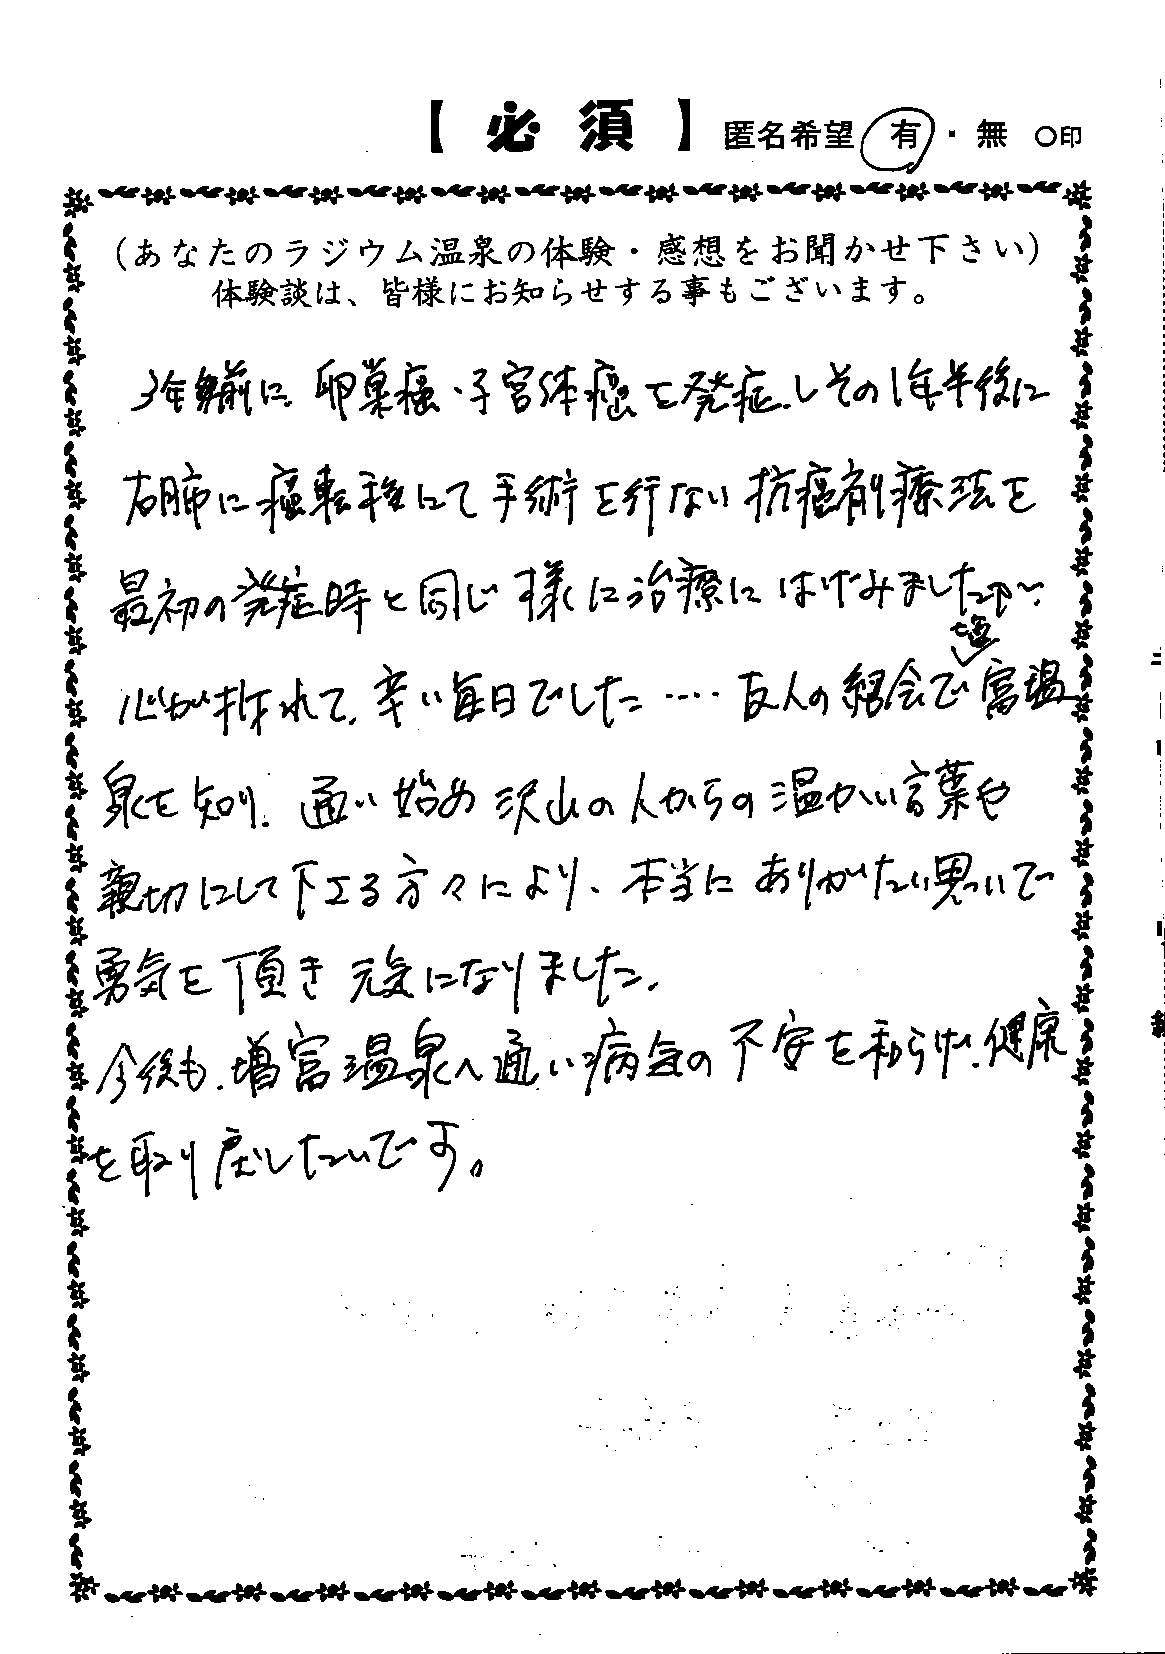 【必須】 匿名希望 有・無 ○印
（あなたのラジウム温泉の体験・感想をお聞かせ下さい）
体験談は、皆様にお知らせする事もございます。
3年前に、卵巣癌・子宮体癌を発症しその1年半後に
右肺に癌転移にて手術を行ない抗癌剤療法を
最初の発症時と同じ様に治療にはげみましたが、
心が折れて、辛い毎日でした‥‥友人の紹介で増富温
泉を知り、通い始め沢山の人からの温かい言葉や
親切にして下さる方々により、本当にありがたい思いで
勇気を頂き元気になりました。
今後も、増富温泉へ通い病気の不安を和らげ、健康
を取り戻したいです。